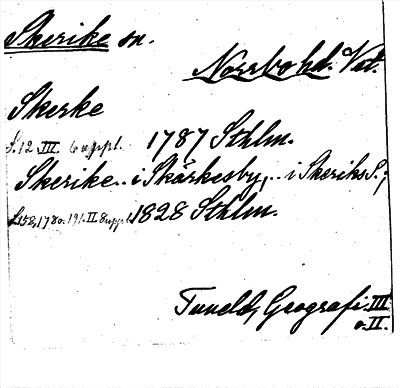 Skerike sn.
Norrbo hd. Vstm.
Skerke
s. 12 III 6 uppl. 1787 Sthlm.
Skerike.. i Skärkesby,.. i Skeriks S.;
s. 158, 178 o. 191. II. 8 uppl. 1828 Sthlm.
Tuneld, Geografi III
o. II.